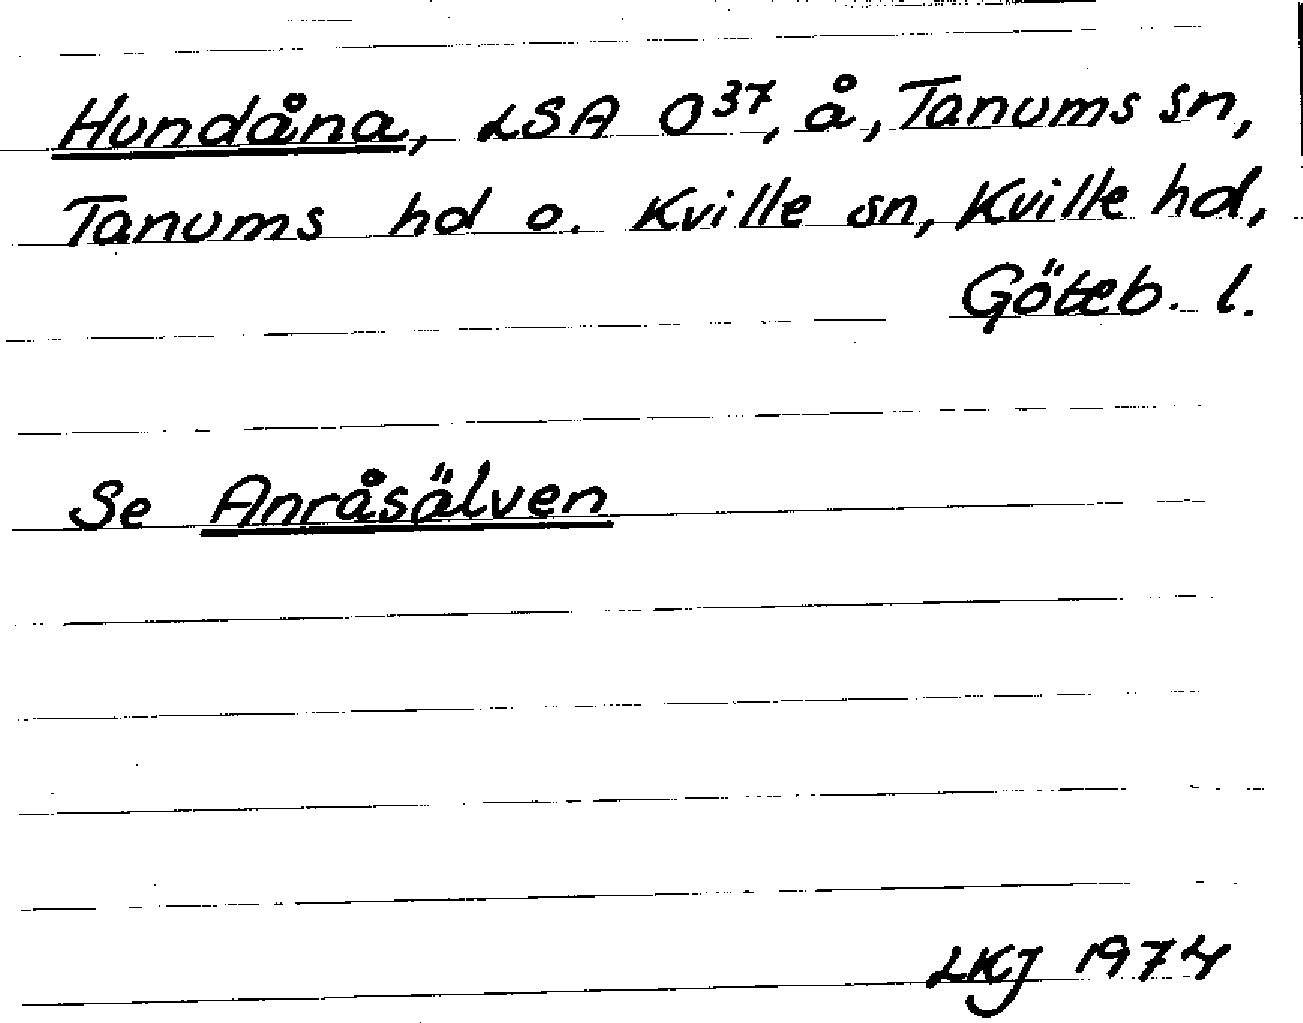 Hundåna, LSA O³⁷, å, Tanums sn,
Tanums hd o. Kville sn, Kville hd,
Göteb. l.
Se Anråsälven
LKJ 1974